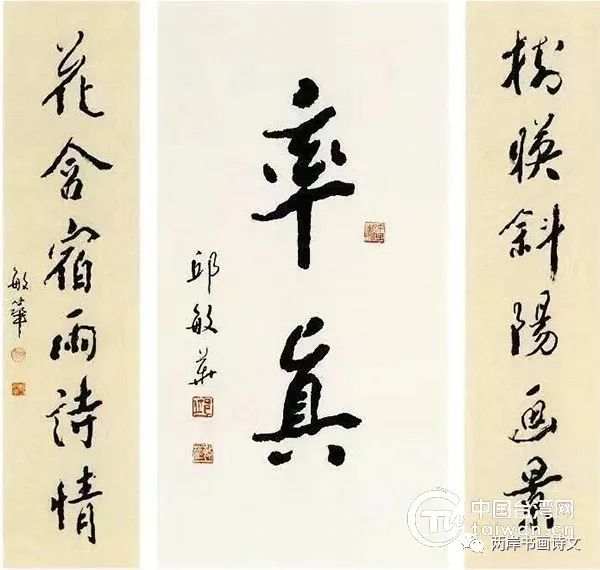 樹暎斜陽画景
率真
邱敏華
花含宿雨詩情
敏華
中国台湾网
taiwan.cn
两岸书画诗文